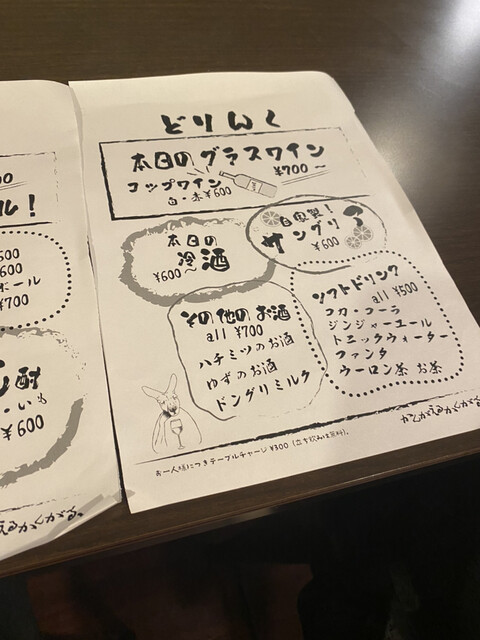 どりんく
本日のグラスワイン
¥700〜
コップワイン
白・赤¥600
自家製!
サングリア
¥600
本日の
冷酒
¥600〜
その他のお酒
all ¥700
ハチミツのお酒
ゆずのお酒
ドングリミルク
ソフトドリンク
all ¥500
コカ・コーラ
ジンジャーエール
トニックウォーター
ファンタ
ウーロン茶 お茶
お一人様につきテーブルチャージ¥300(立ち飲みは無料)。
00
ル!
500
600
ボール
¥700
酎
・いも
¥600